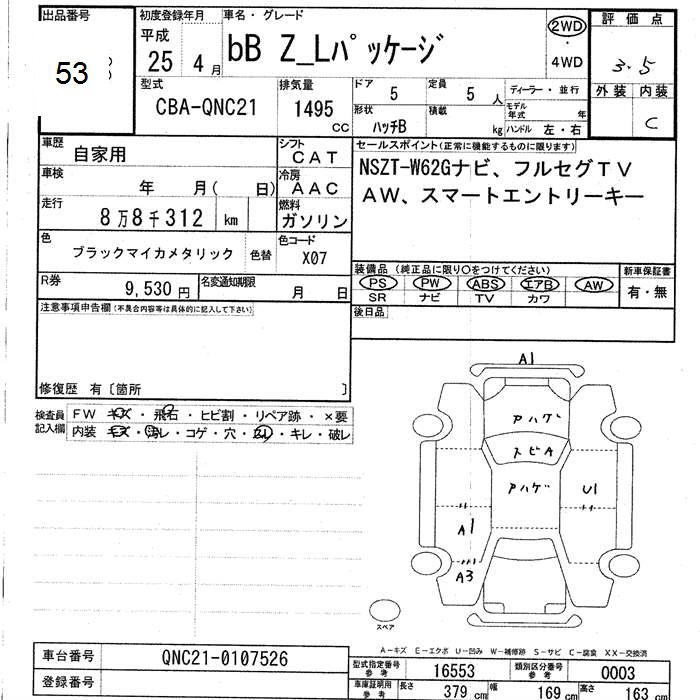 出品番号
53
初度登録年月
平成
25 4 月
車名・グレード
bB Z_Lパッケージ
2WD
・
4WD
評価点
3.5
外装 内装
C
型式
CBA-QNC21
排気量
1495
CC
ドア 5
定員 5 人
形状 ハッチB
積載 kg
ディーラー・並行
モデル年式 年
ハンドル 左・右
車歴 自家用
車検 年 月( 日)
走行 8万8千312 km
色 ブラックマイカメタリック 色替
シフト CAT
冷房 AAC
燃料 ガソリン
色コード X07
R券 9,530 円
名変通知期限 月 日
セールスポイント(正常に機能するものに限ります)
NSZT-W62Gナビ、フルセグTV
AW、スマートエントリーキー
装備品 (純正品に限り〇をつけてください)
PS PW ABS エアB AW
SR ナビ TV カワ
新車保証書
有・無
後日品
注意事項申告欄(不具合内容等は具体的に記入して下さい)
修復歴 有〔箇所 〕
検査員記入欄
FW キズ・飛石・ヒビ割・リペア跡・×要
内装 キズ・汚レ・コゲ・穴・キレ・破レ
A1
アハゲ
スピA
アハゲ
U1
A1
A3
スペア
A-キズ E-エクボ U-凹み W-補修跡 S-サビ C-腐食 XX-交換済
車台番号 QNC21-0107526
登録番号
型式指定番号参考 16553
類別区分番号参考 0003
車庫証明用参考
長さ 379 cm
幅 169 cm
高さ 163 cm